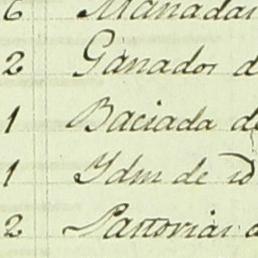 6 Manadas
2 Ganados d
1 Baciada de
1 Ydm de id
2 Pastorias d